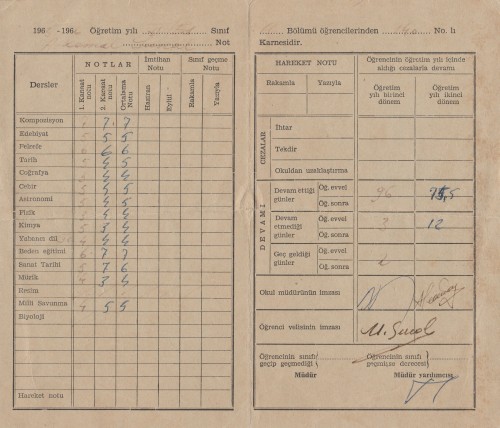 196 -196 Öğretim yılı Sınıf
Not
Dersler
NOTLAR
İmtihan Notu
Sınıf geçme Notu
1. Kanaat notu
2. Kanaat notu
Ortalama Notu
Haziran
Eylül
Rakamla
Yazıyla
Kompozisyon 7 7
Edebiyat 5 5
Felsefe 6 6
Tarih 5 4 5
Coğrafya 4 5
Cebir 4 5
Astronomi 4 5
Fizik 5 4
Kimya 5 3 4
Yabancı dil 4 4
Beden eğitimi 6 7 7
Sanat Tarihi 5 7 6
Müzik 3 4
Resim
Milli Savunma 5 5
Biyoloji
Hareket notu
Bölümü öğrencilerinden No. lı
Karnesidir.
HAREKET NOTU
Rakamla Yazıyla
Öğrencinin öğretim yılı içinde aldığı cezalarla devamı
Öğretim yılı birinci dönem
Öğretim yılı ikinci dönem
CEZALAR
İhtar
Tekdir
Okuldan uzaklaştırma
DEVAMI
Devam ettiği günler
Öğ. evvel
Öğ. sonra
Devam etmediği günler
Öğ. evvel 3 12
Öğ. sonra
Geç geldiği günler
Öğ. evvel 2
Öğ. sonra
Okul müdürünün imzası
Öğrenci velisinin imzası
Öğrencinin sınıfı geçip geçmediği
Öğrencinin sınıfı geçmişse derecesi
Müdür
Müdür yardımcısı